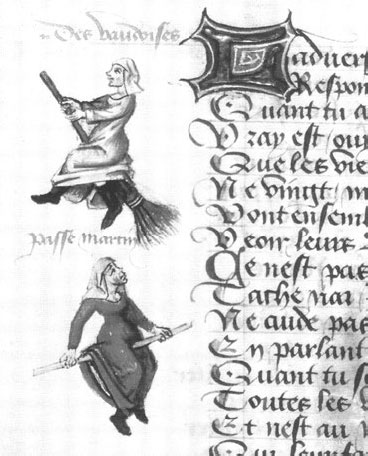 Des vaudoises
passe martin
Ladvers
Respon
Quant tu a
Vray est ou
Que les vie
Ne vingt m
Vont ensembl
Veoir leurs
Ce nest pas
Tache nai
Ne cuide pas
En parlant
Quant tu s
Toutes les
Et nest au